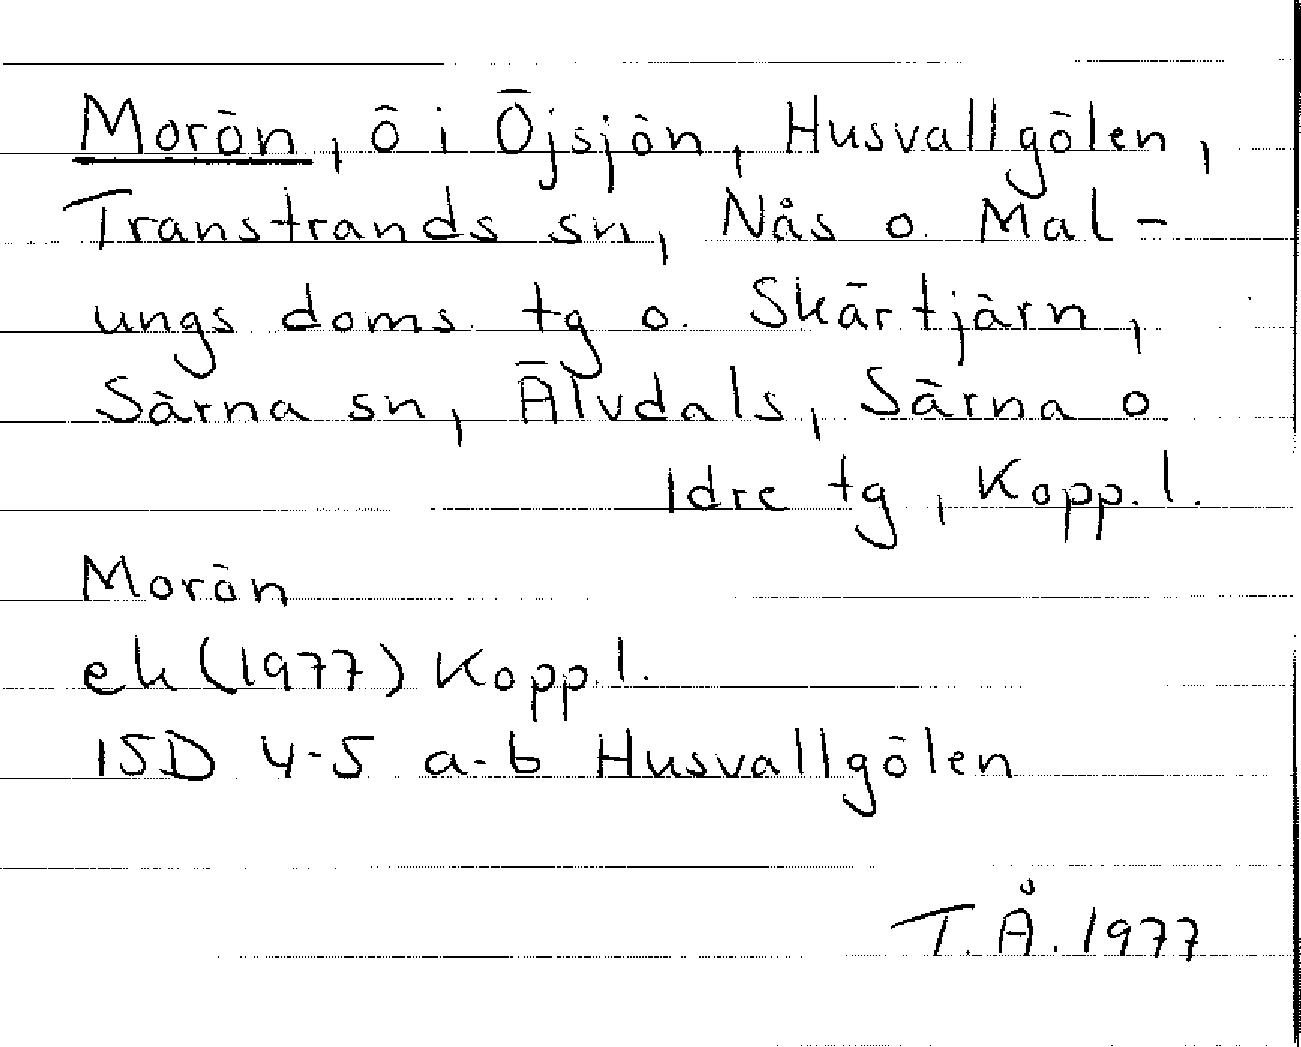 Morön, ö i Öjsjön, Husvallgölen,
Transtrands sn, Nås o. Mal-
ungs doms. tg o. Skärtjärn,
Särna sn, Älvdals, Särna o
Idre tg, Kopp. l.
Morön
ek (1977) Kopp. l.
15D 4-5 a-b Husvallgölen
T.Å. 1977